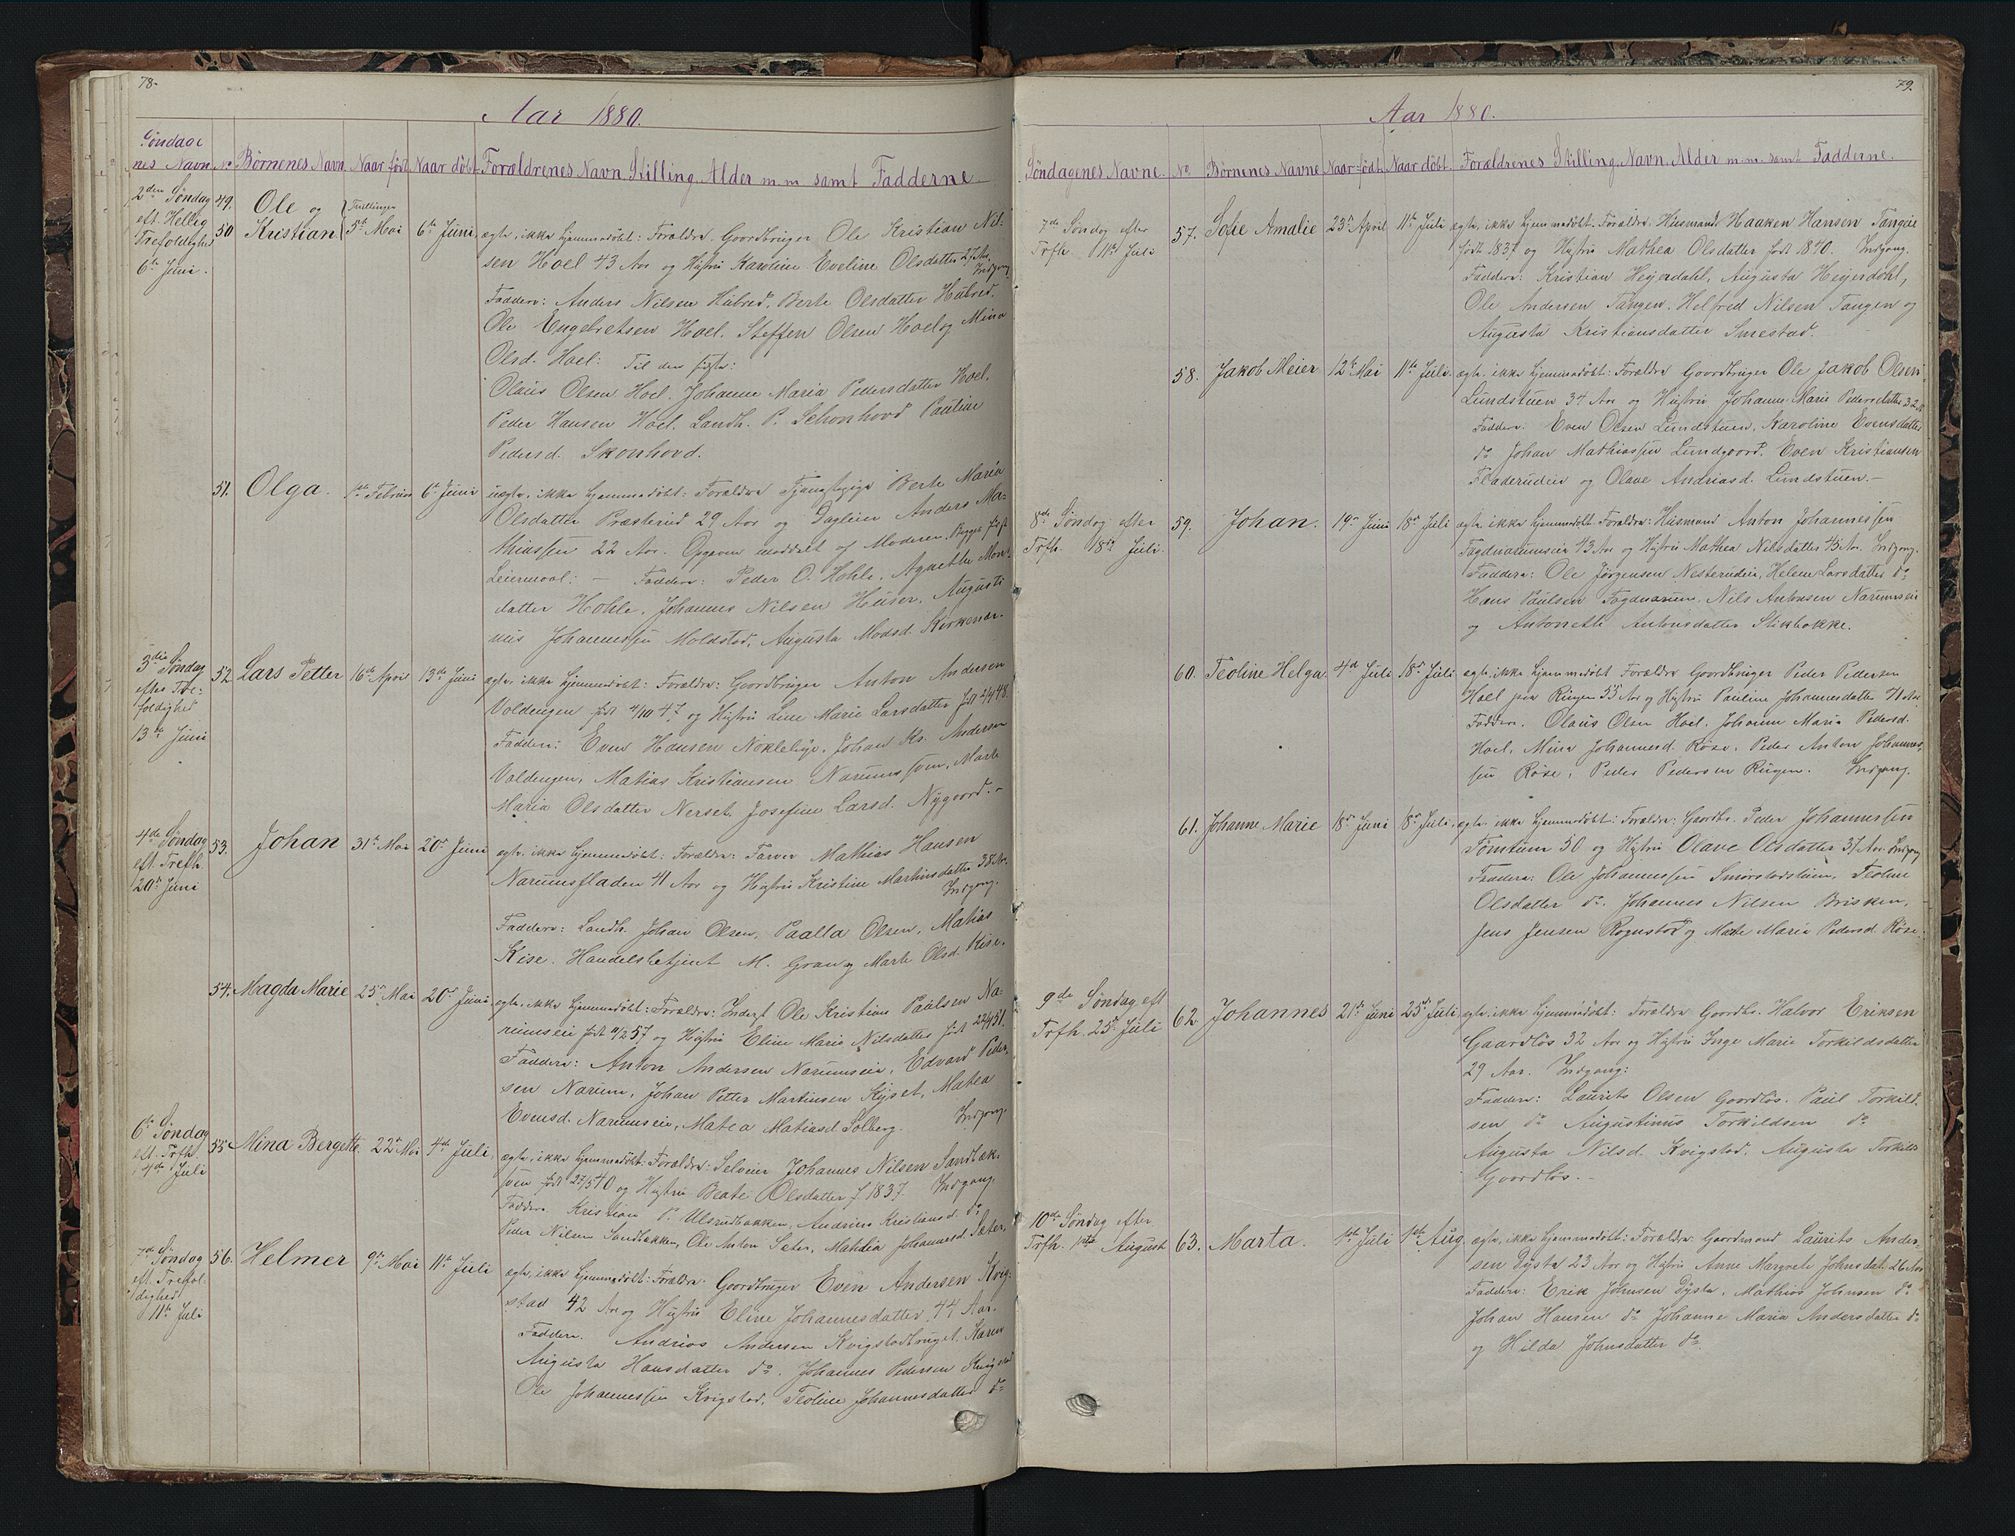 78.
Aar 1880.
Søndage
nes Navn No Børnenes Navn Naar født Naar døbt Forældrenes Navn Stilling Alder m. m. samt Fadderne.
2den Søndag eft. Hellig Trefoldighed 6te Juni.
49. Ole og
50 Kristian Tvillinger 5te Mai 6te Juni ægte, ikke hjemmedøbt: Forældre. Gaardbruger Ole Kristian Nil-
sen Hoel 43 Aar og Hustru Karoline Eveline Olsdatter 27 Aar. Indgang
Faddere: Anders Nilsen Hubred, Berte Olsdatter Hubred.
Ole Engebretsen Hoel. Steffen Olsen Hoel og Mina
Olsd. Hoel: Til den sidste:
Olaus Olsen Hoel. Johanne Maria Pedersdatter Hoel,
Peder Hansen Hoel. Landh. P. Schonhovd Pauline
Pedersd. Skonhovd.
51. Olga. 1ste Februar 6te Juni uægte, ikke hjemmedøbt: Forældre Tjenestepige Berte Maria
Olsdatter Præsterud 29 Aar og Dagleier Anders Ma-
thiassen 22 Aar. Opgaven meddelt af Moderen. Begges første
Leiermaal: — Faddere: Peder O. Hohle, Agnethe Mons-
datter Hohle, Johannes Nilsen Huser, Augusti
nus Johannessen Moldstad, Augusta Madsd. Kirkenær.
3die Søndag efter Tre-
foldighed
13de Juni
52. Lars Petter 16de April 13de Juni ægte, ikke hjemmedøbt: Forældre: Gaardbruger Anton Andersen
Voldengen født 4/10 47 og Hustru Line Marie Larsdatter født 2/9 48.
Faddere: Even Hansen Noklebye, Johan Kr. Andersen
Voldengen, Matias Kristiansen Narumssven, Marte
Maria Olsdatter Nerset, Josefine Larsd. Nygaard. —
4de Søndag
eft. Trefh.
20de Juni
53. Johan 31te Mai 20de Juni ægte, ikke hjemmedøbt: Forældre: Farver Mathias Hansen
Narumsfladen 41 Aar og Hustru Kristine Martinsdatter 38 Aar. Indgang.
Faddere: Landh. Johan Olsen, Paalla Olsen, Matias
Kise. Handelsbetjent M. Gran og Marte Olsd. Kise.
54. Magda Marie 25de Mai 20de Juni ægte, ikke hjemmedøbt: Forældre: Inderst Ole Kristian Paulsen Na-
rumseie født 11/2 57 og Hustru Eline Marie Nilsdatter født 22/4 51.
Faddere: Anton Andersen Narumseie, Edvard Peder-
sen Narum, Johan Petter Martinsen Kyset, Matea
Evensd. Narumseie, Matea Matiasd Solberg. Indgang.
6te Søndag
eft. Trfh.
4de Juli
55 Mina Bergette 22de Mai 4de Juli. ægte, ikke hjemmedøbt: Forældre: Selveier Johannes Nilsen Sandbæk-
sven født 27/5 40 og Hustru Beate Olsdatter f 1837. Indgang.
Faddere Kristian P. Ulsrudbakken, Andrine Kristiansd. do
Peder Nilsen Sandbakken, Ole Anton Sæter, Matilda Johannesd. Sæter.
7de Søndag
eft. Trefol-
dighed
11te Juli
56. Helmer 9de Mai 11te Juli ægte, ikke hjemmedøbt: Forældre. Gaardbruger Even Andersen Kvig-
stad 42 Aar og Hustru Eline Johannesdatter 44 Aar.
Faddere. Andrias Andersen Kvigstadbruget, Karen
Augusta Hansdatter do, Johannes Pedersen Kvigstad
Ole Johannessen Kvigstad, Teoline Johannesdatter do
79.
Aar 1880.
Søndagenes Navne. No Børnenes Navne Naar født Naar døbt. Forældrenes Stilling, Navn, Alder m. m. samt Fadderne.
7de Søndag efter
Trfh. 11te Juli
57. Sofie Amalie 23de April 11te Juli ægte, ikke hjemmedøbt. Forældre: Husmand Haaken Hansen Tangeie
født 1837 og Hustru Mathea Olsdatter født 1840. Indgang.
Faddere: Kristian Heyerdahl, Augusta Heyerdahl,
Ole Andersen Tangen, Helfred Nilsen Tangen og
Augusta Kristiansdatter Smestad.
58. Jakob Meier 12te Mai 11te Juli. ægte, ikke hjemmedøbt: Forældre Gaardbruger Ole Jakob Olsen
Lundstuen 34 Aar og Hustru Johanne Marie Pedersdatter 32 Aar
Faddere: Even Olsen Lundstuen, Karoline Evensdatter
do Johan Mathiassen Lundgaard, Even Kristiansen
Fladerudeie og Olave Andriasd. Lundstuen. —
8de Søndag efter
Trfh. 18de Juli.
59. Johan. 19de Juni 18de Juli ægte, ikke hjemmedøbt. Forældre: Husmand Anton Johannessen
Fagdnarumseie 43 Aar og Hustru Mathea Nilsdatter 43 Aar. Indgang.
Faddere: Ole Jørgensen Nesterudeie, Helene Larsdatter do
Hans Paulsen Fagdnarum, Nils Antonsen Narumseie
og Antonette Antonsdatter Stikbakke.
60. Teoline Helga 4de Juli 18de Juli ægte, ikke hjemmedøbt Forældre Gaardbruger Peder Pedersen
Hoel paa Ringen 55 Aar og Hustru Pauline Johannesdatter 41 Aar
Faddere. Olaus Olsen Hoel. Johanne Maria Pedersd.
Hoel, Mina Johannesd. Røse, Peder Anton Johannes-
sen Røse, Peder Pedersen Ringen. Indgang.
61. Johanne Marie 18de Juni 18de Juli. ægte, ikke hjemmedøbt: Forældre: Gaardbr. Peder Johannessen
Tomtum 50 og Hustru Olave Olsdatter 37 Aar. Indgang
Faddere: Ole Johannessen Smørstadstuen, Teoline
Olsdatter do. Johannes Nilsen Brisken,
Jens Jensen Rogustad og Marte Maria Pedersd. Røse.
9de Søndag eft
Trfh. 25de Juli
62. Johannes 21de Juni 25de Juli ægte, ikke hjemmedøbt: Forældre Gaardbr. Halvor Eriksen
Gaardløs 32 Aar og Hustru Inge Marie Torkildsdatter
29 Aar. Indgang:
Faddere: Laurits Olsen Gaardløs. Paul Torkild-
sen do Augustinus Torkildsen do
Augusta Nilsd. Kvigstad, Augusta Torkilds
Gaardløs. —
10de Søndag efter
Trfh. 1ste August
63. Marta. 1ste Juli 1ste Aug. ægte, ikke hjemmedøbt: Forældre Gaardmand Laurits Ander-
sen Dysta 23 Aar og Hustru Anne Margrete Johnsdat. 26 Aar
Faddere: Erik Johnsen Dysta, Mathias Johnsen do
Johan Hansen do Johanne Maria Andersdatter do
og Hilda Johnsdatter do